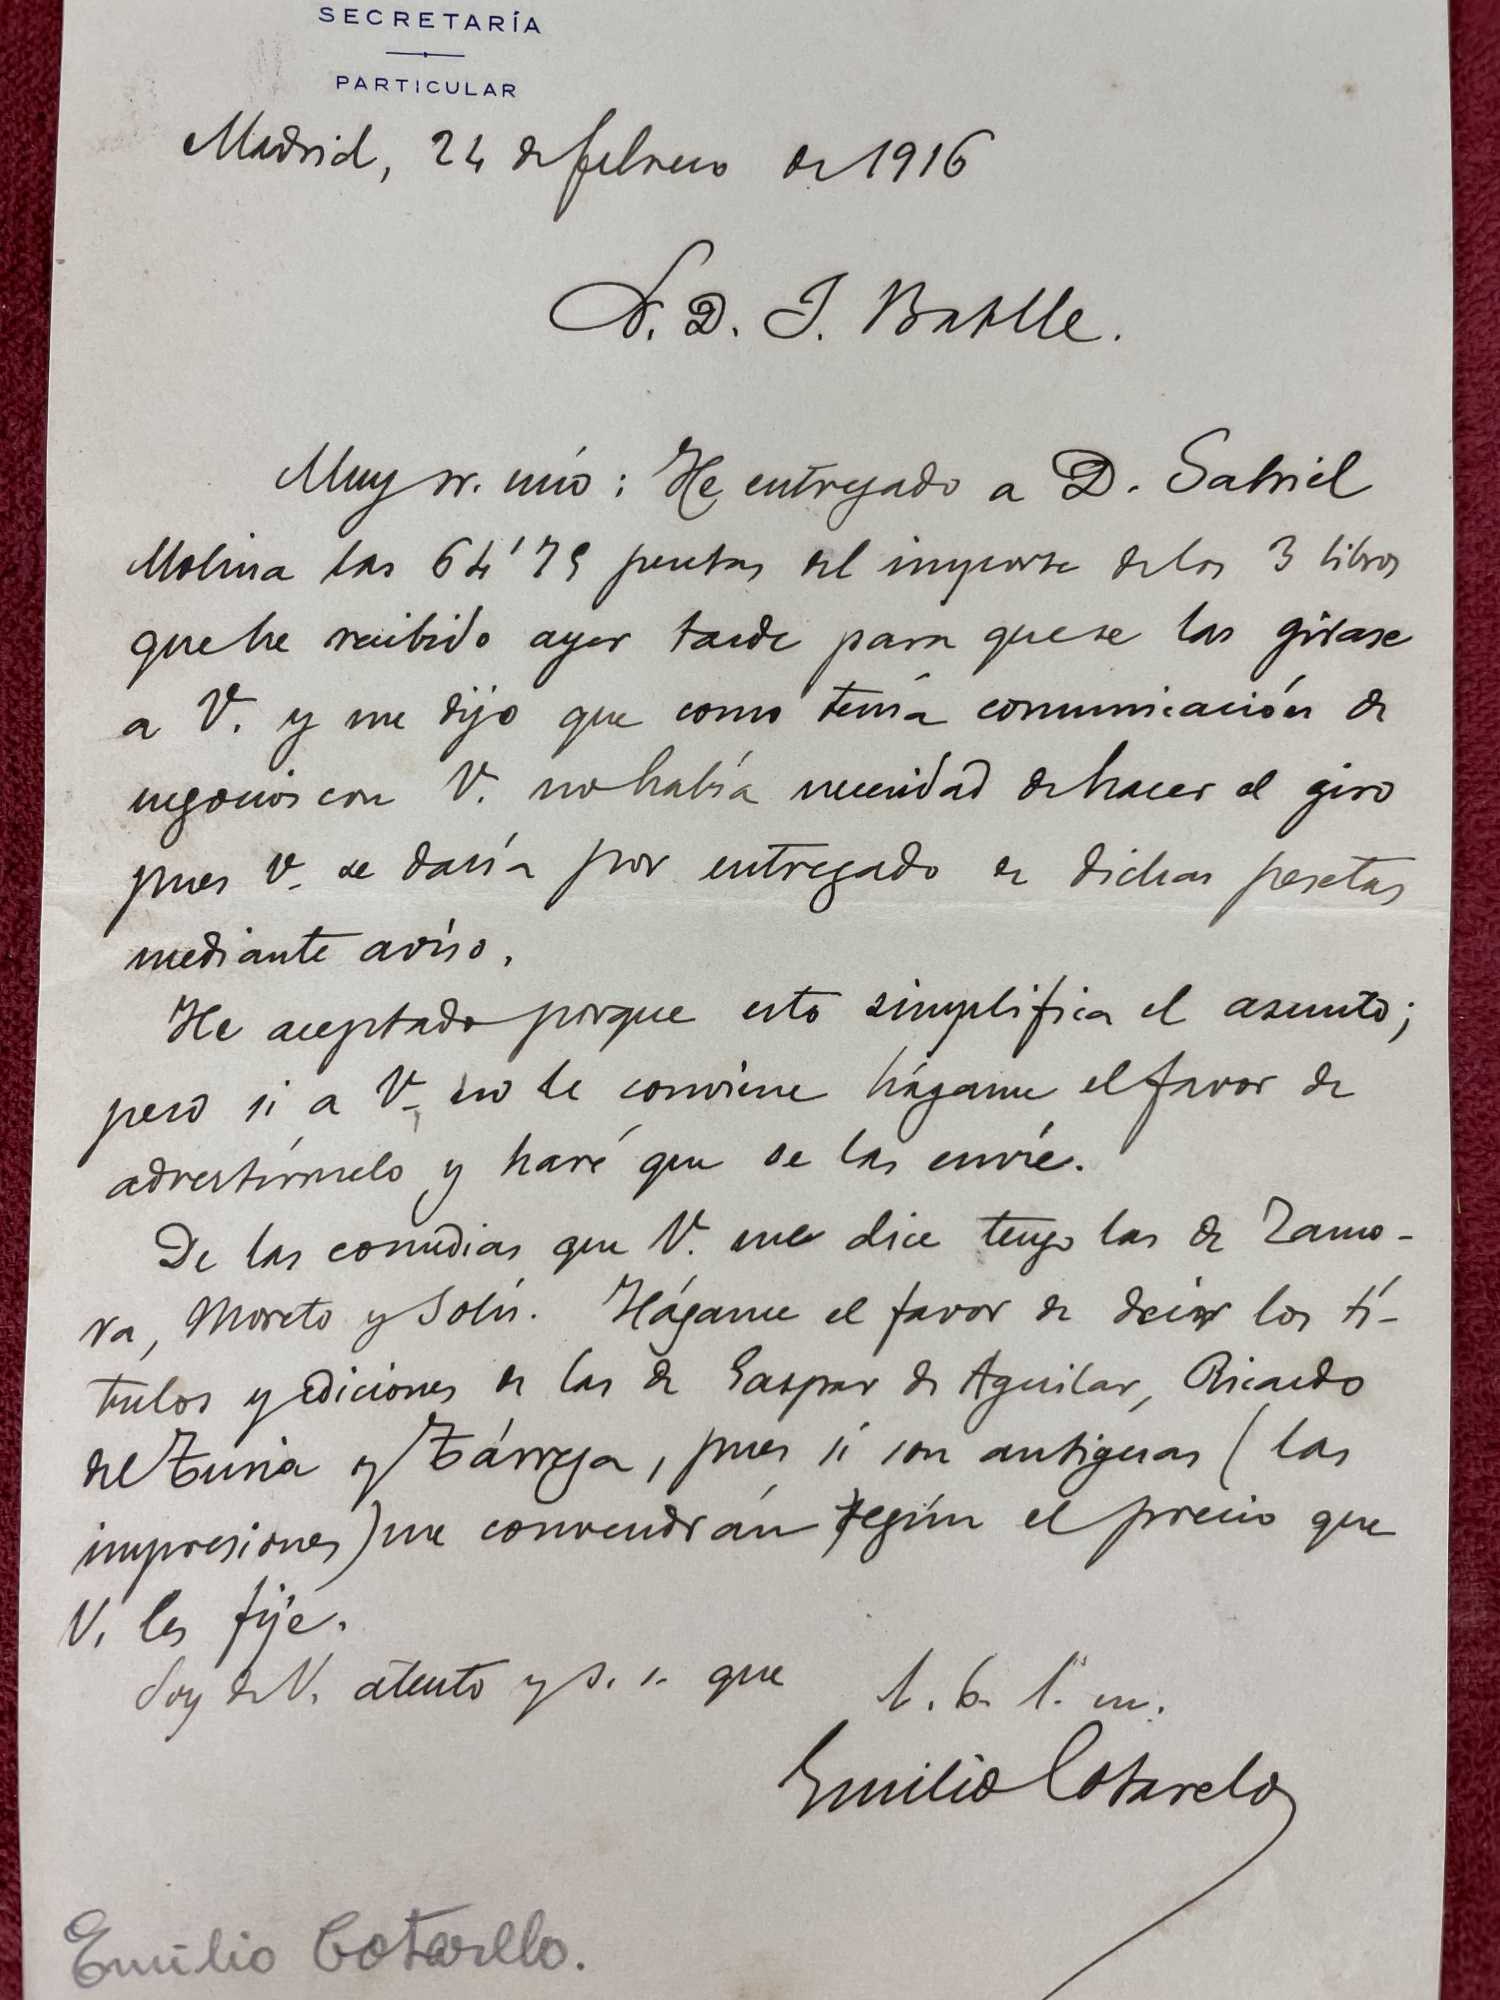 SECRETARÍA
PARTICULAR
Madrid, 24 de febrero de 1916
S. D. J. Batlle.
Muy sr. mío: He entregado a D. Gabriel
Molina las 64'75 pesetas del importe de los 3 libros
que he recibido ayer tarde para que se las girase
a V. y me dijo que como tenía comunicación de
negocios con V. no había necesidad de hacer el giro
pues V. se daría por entregado de dichas pesetas
mediante aviso.
He aceptado porque esto simplifica el asunto;
pero si a V. no le conviene hágame el favor de
advertírmelo y haré que se las envíe.
De las comedias que V. me dice tengo las de Zamo-
ra, Moreto y Solís. Hágame el favor de decir los tí-
tulos y ediciones de las de Gaspar de Aguilar, Ricardo
del Turia y Tárrega, pues si son antiguas (las
impresiones) me convendrán según el precio que
V. les fije.
Soy de V. atento y s. s. que l. b. l. m.
Emilio Cotarelo
Emilio Cotarello.